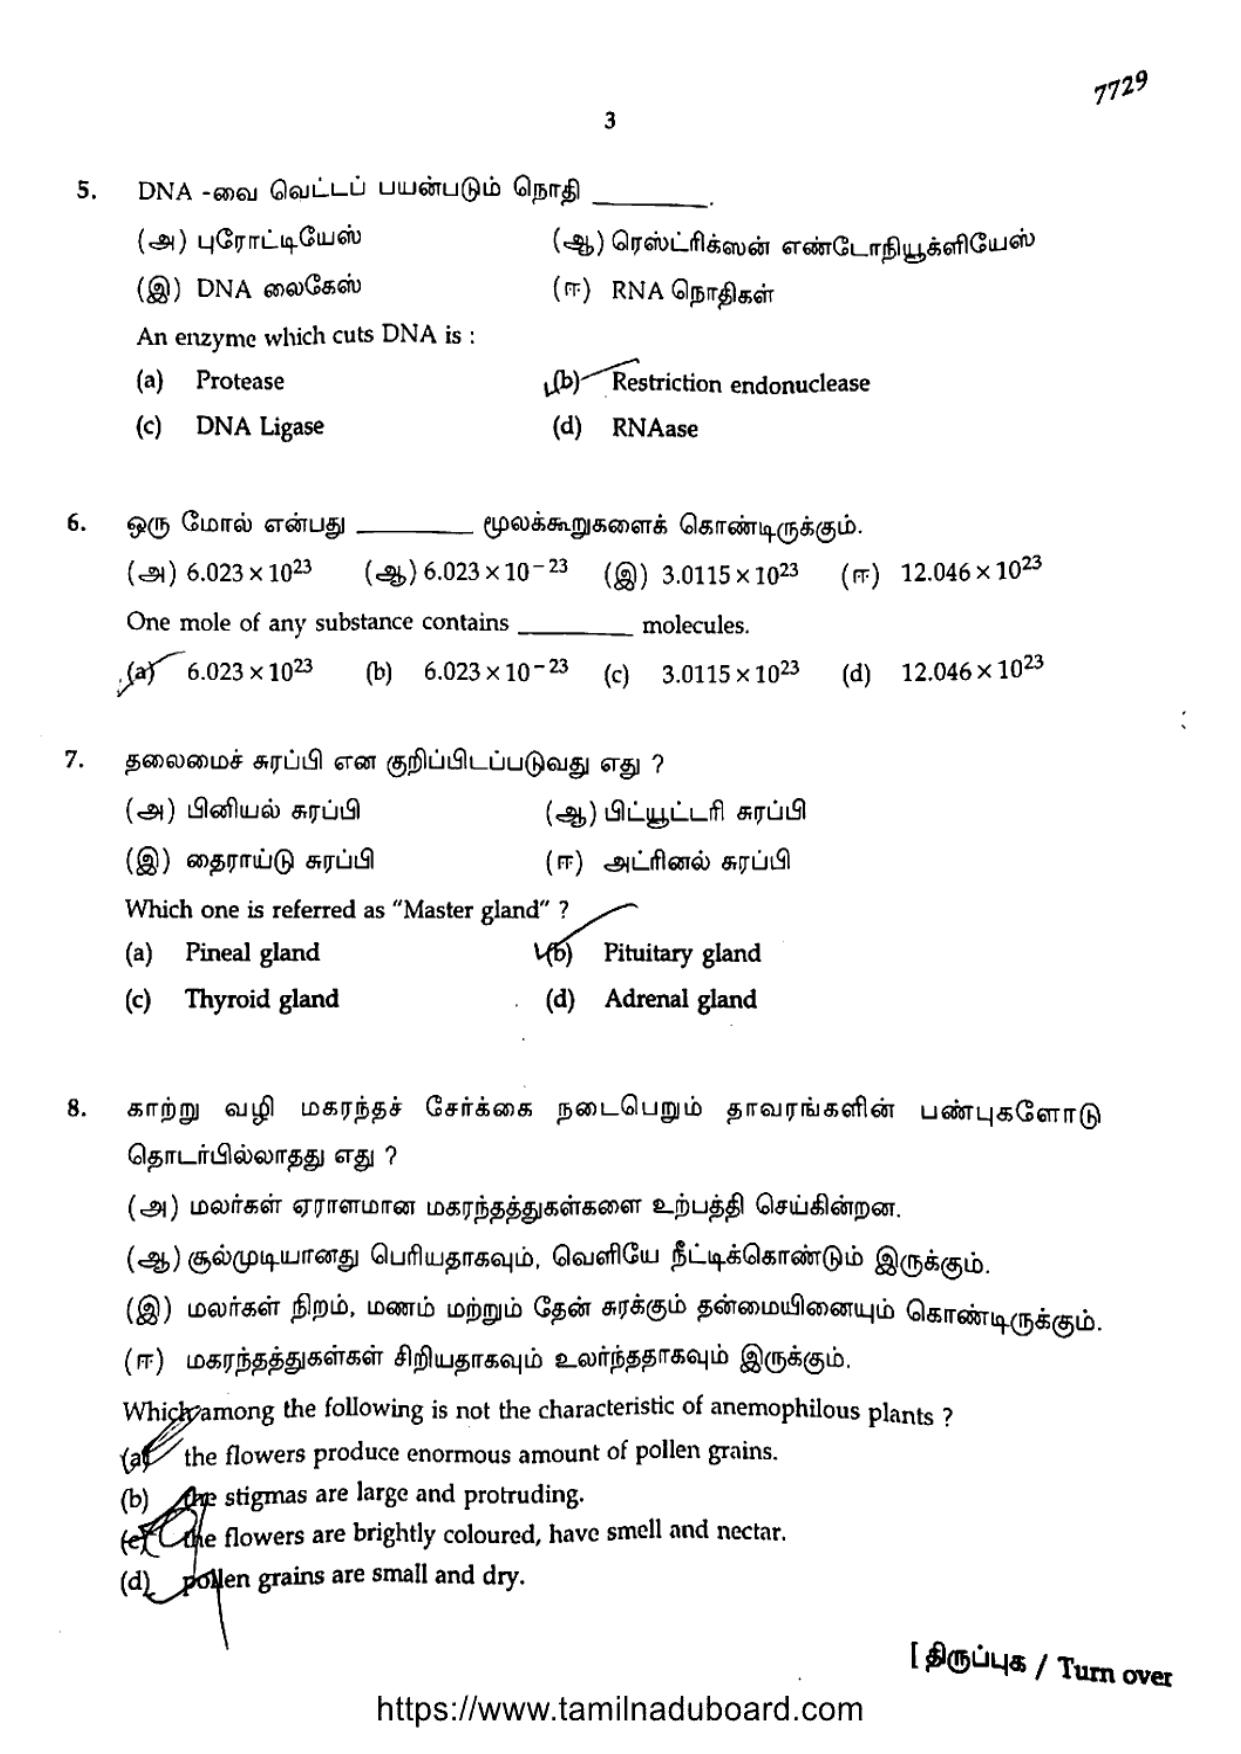 7729
3
5. DNA -வை வெட்டப் பயன்படும் நொதி ________.
(அ) புரோட்டியேஸ் (ஆ) ரெஸ்ட்ரிக்ஸன் எண்டோநியூக்ளியேஸ்
(இ) DNA லைகேஸ் (ஈ) RNA நொதிகள்
An enzyme which cuts DNA is :
(a) Protease (b) Restriction endonuclease
(c) DNA Ligase (d) RNAase
6. ஒரு மோல் என்பது ________ மூலக்கூறுகளைக் கொண்டிருக்கும்.
(அ) 6.023 × 10²³ (ஆ) 6.023 × 10⁻²³ (இ) 3.0115 × 10²³ (ஈ) 12.046 × 10²³
One mole of any substance contains ________ molecules.
(a) 6.023 × 10²³ (b) 6.023 × 10⁻²³ (c) 3.0115 × 10²³ (d) 12.046 × 10²³
7. தலைமைச் சுரப்பி என குறிப்பிடப்படுவது எது ?
(அ) பினியல் சுரப்பி (ஆ) பிட்யூட்டரி சுரப்பி
(இ) தைராய்டு சுரப்பி (ஈ) அட்ரினல் சுரப்பி
Which one is referred as “Master gland” ?
(a) Pineal gland (b) Pituitary gland
(c) Thyroid gland (d) Adrenal gland
8. காற்று வழி மகரந்தச் சேர்க்கை நடைபெறும் தாவரங்களின் பண்புகளோடு
தொடர்பில்லாதது எது ?
(அ) மலர்கள் ஏராளமான மகரந்தத்துகள்களை உற்பத்தி செய்கின்றன.
(ஆ) சூல்முடியானது பெரியதாகவும், வெளியே நீட்டிக்கொண்டும் இருக்கும்.
(இ) மலர்கள் நிறம், மணம் மற்றும் தேன் சுரக்கும் தன்மையினையும் கொண்டிருக்கும்.
(ஈ) மகரந்தத்துகள்கள் சிறியதாகவும் உலர்ந்ததாகவும் இருக்கும்.
Which among the following is not the characteristic of anemophilous plants ?
(a) the flowers produce enormous amount of pollen grains.
(b) the stigmas are large and protruding.
(c) the flowers are brightly coloured, have smell and nectar.
(d) pollen grains are small and dry.
[ திருப்புக / Turn over
https://www.tamilnaduboard.com